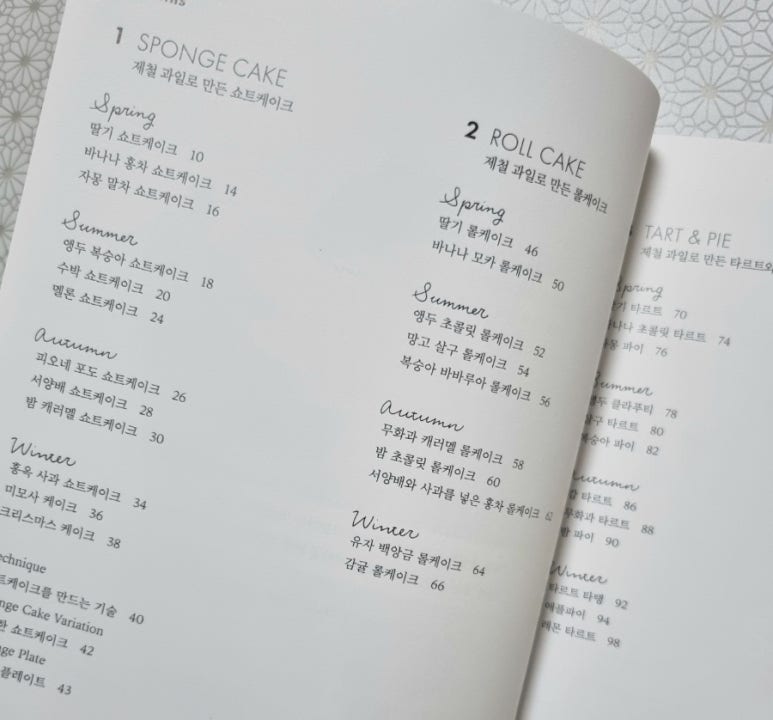 1 SPONGE CAKE
제철 과일로 만든 쇼트케이크
Spring
딸기 쇼트케이크 10
바나나 홍차 쇼트케이크 14
자몽 말차 쇼트케이크 16
Summer
앵두 복숭아 쇼트케이크 18
수박 쇼트케이크 20
멜론 쇼트케이크 24
Autumn
피오네 포도 쇼트케이크 26
서양배 쇼트케이크 28
밤 캐러멜 쇼트케이크 30
Winter
홍옥 사과 쇼트케이크 34
미모사 케이크 36
크리스마스 케이크 38
echnique
트케이크를 만드는 기술 40
nge Cake Variation
한 쇼트케이크 42
ge Plate
플레이트 43
2 ROLL CAKE
제철 과일로 만든 롤케이크
Spring
딸기 롤케이크 46
바나나 모카 롤케이크 50
Summer
앵두 초콜릿 롤케이크 52
망고 살구 롤케이크 54
복숭아 바바루아 롤케이크 56
Autumn
무화과 캐러멜 롤케이크 58
밤 초콜릿 롤케이크 60
서양배와 사과를 넣은 홍차 롤케이크 62
Winter
유자 백앙금 롤케이크 64
감귤 롤케이크 66
TART & PIE
제철 과일로 만든 타르트와
Spring
타르트 70
초콜릿 타르트 74
파이 76
Summer
클라푸티 78
타르트 80
파이 82
Autumn
타르트 86
무화과 타르트 88
파이 90
Winter
타르트 타탱 92
애플파이 94
레몬 타르트 98